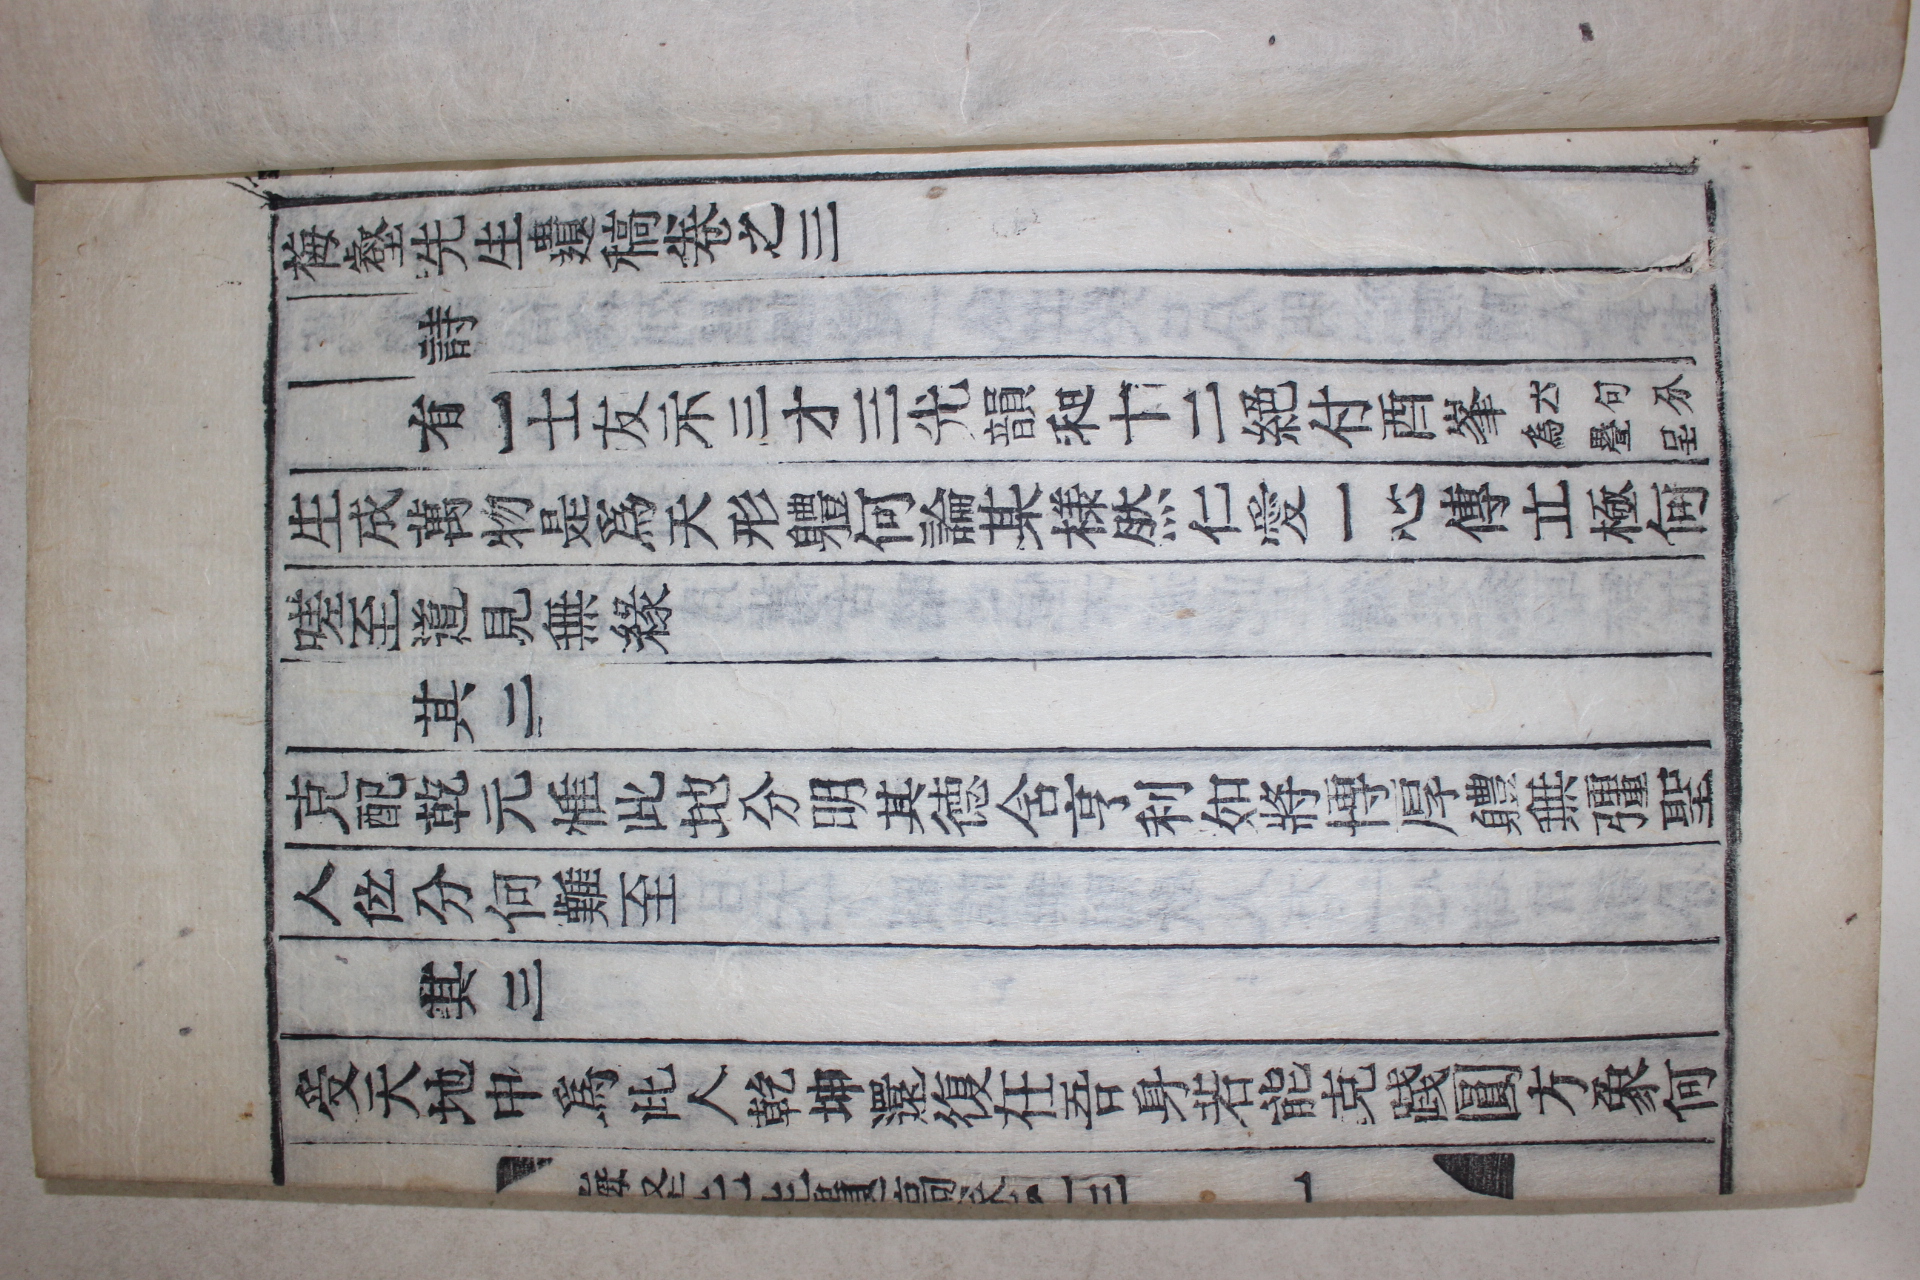 梅壑先生遺稿卷之三
詩
有一士友示三才三光韻和十二絶付酉峯句爲疊呈
生成萬物是爲天形體何論某樣然仁愛一心傳立極何
嗟至道見無緣
其二
克配乾元惟此地分明其德含亨利如將博厚體無彊聖
人位分何難至
其三
受天地中爲此人乾坤還復在吾身若能克踐圓方象何
三 一